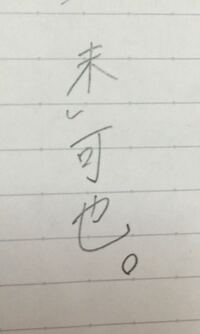 未レ可也。